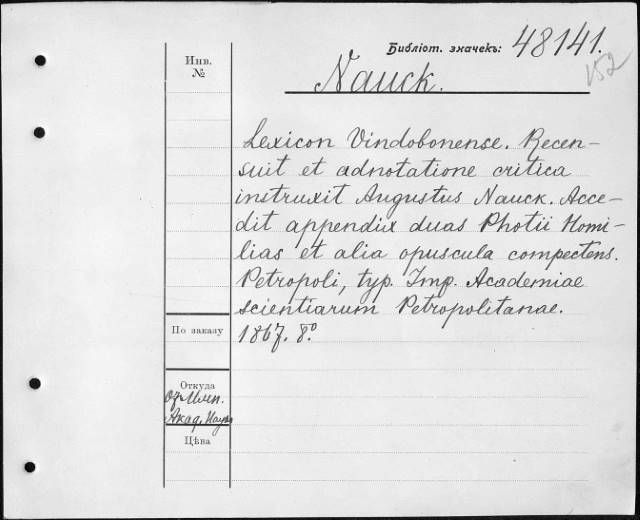 Библіот. значекъ: 48141.
152
Инв.
№
Nauck.
Lexicon Vindobonense. Recen-
suit et adnotatione critica
instruxit Augustus Nauck. Acce-
dit appendix duas Photii Homi-
lias et alia opuscula compectens.
Petropoli, typ. Imp. Academiae
scientiarum Petropolitanae.
По заказу
1867. 8º
Откуда
От Имп.
Акад. Наукъ
Цѣна